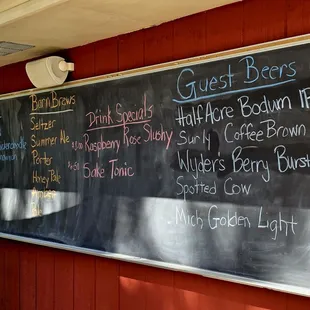 Barn Brews
Seltzer
Summer Ale
Porter
Honey Pale
Drink Specials
Raspberry Rosé Slushy
Sake Tonic
Guest Beers
Half Acre Bodum IP
Surly Coffee Brown
Wyders Berry Burst
Spotted Cow
Mich Golden Light